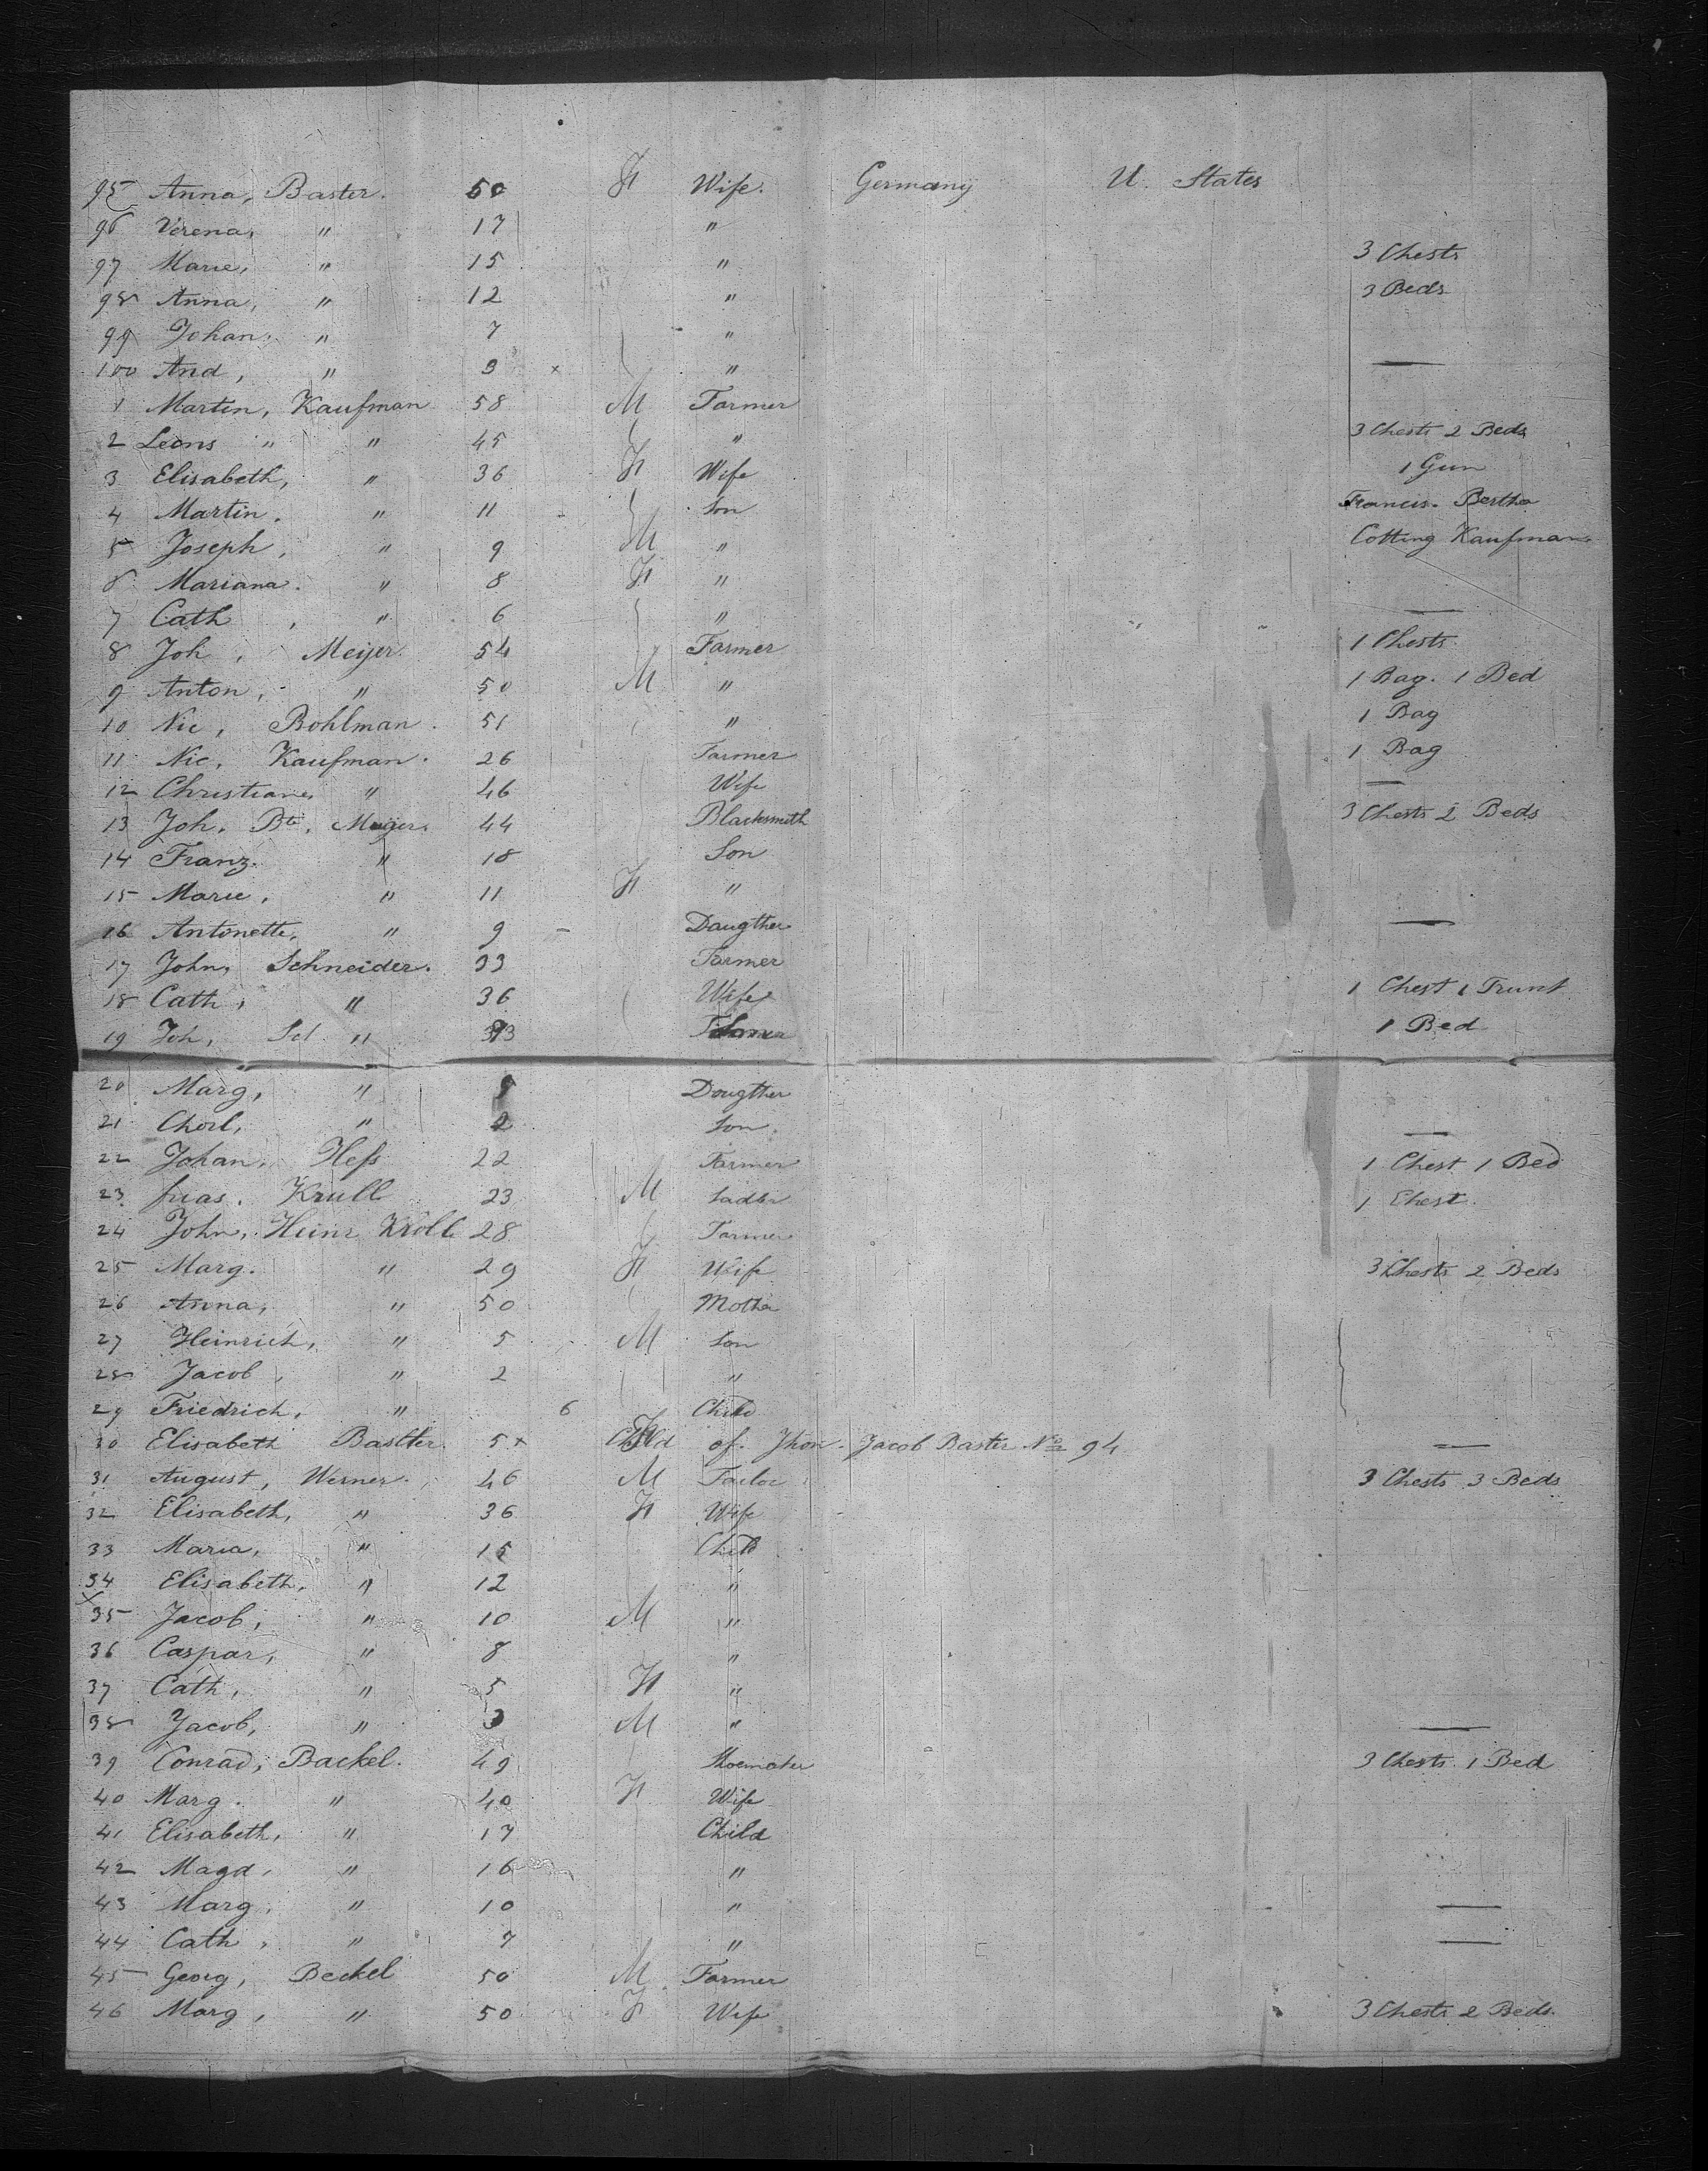 95 Anna, Baster. 50 F Wife. Germany U. States
96 Verena, " 17 "
97 Marie, " 15 " 3 Chests
98 Anna, " 12 " 3 Beds
99 Johan, " 7 "
100 And, " 3 × " —
1 Martin, Kaufman 58 M Farmer
2 Leons " " 45 " 3 Chests 2 Beds
3 Elisabeth, " 36 F Wife 1 Gun
4 Martin, " 11 Son Francis. Bertha
5 Joseph, " 9 M " Cotting Kaufman
6 Mariana. " 8 F "
7 Cath , " 6 " —
8 Joh , Meijer. 54 Farmer 1 Chests
9 Anton, " 50 M " 1 Bag. 1 Bed
10 Nic, Bohlman. 51 " 1 Bag
11 Nic, Kaufman. 26 Farmer 1 Bag
12 Christiane, " 46 Wife —
13 Joh, Bte, Meijer. 44 Blacksmith 3 Chests 2 Beds
14 Franz. " 18 Son
15 Marie, " 11 F "
16 Antonette, " 9 Daugther —
17 John, Schneider. 33 Farmer
18 Cath, " 36 Wife 1 Chest 1 Trunt
19 Joh, Sch " Son 1 Bed
20 Marg, " Dougther
21 Charl, " 2 Son. —
22 Johan, Hefs 22 Farmer 1 Chest 1 Bed
23 Krull 23 M Sadler 1 Chest.
24 John, Heinr Kroll 28 Farmer
25 Marg. " 29 F Wife 3 Chests 2 Beds
26 Anna, " 50 Mother
27 Heinrich, " 5 M Son
28 Jacob, " 2 "
29 Friedrich, " 6 Child
30 Elisabeth Bastter. 5 × Child of. Jhon. Jacob Baster No 94 —
31 August, Werner. 46 M Tailor 3 Chests 3 Beds
32 Elisabeth, " 36 F Wife
33 Maria, " 15 Child
34 Elisabeth, " 12 "
× 35 Jacob, " 10 M "
36 Caspar, " 8 "
37 Cath, " 5 F "
38 Jacob, " 3 M " —
39 Conrad, Backel. 49 Shoemater 3 Chests. 1 Bed
40 Marg. " 40 F Wife
41 Elisabeth, " 17 Child
42 Magd, " 16 "
43 Marg, " 10 " —
44 Cath, " 7 " —
45 Georg, Beckel 50 M Farmer
46 Marg, " 50 F Wife 3 Chests 2 Beds.